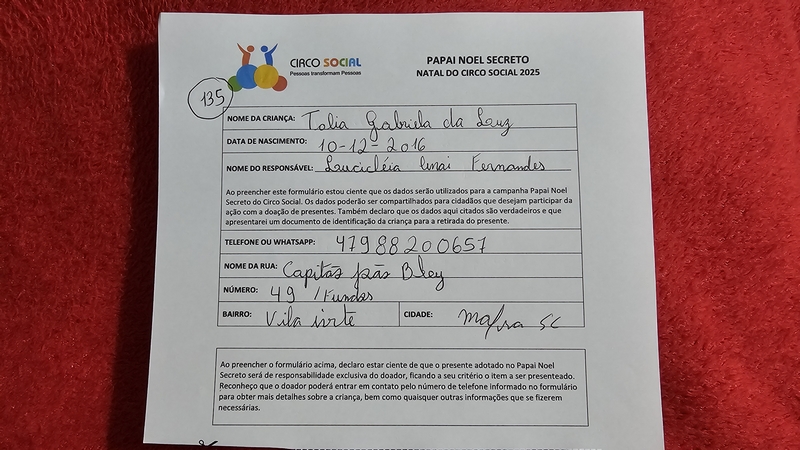 CIRCO SOCIAL
Pessoas transformam Pessoas
PAPAI NOEL SECRETO
NATAL DO CIRCO SOCIAL 2025
135
NOME DA CRIANÇA: Talia Gabriela da Luz
DATA DE NASCIMENTO: 10-12-2016
NOME DO RESPONSÁVEL: Laucicléia Fernandes
Ao preencher este formulário estou ciente que os dados serão utilizados para a campanha Papai Noel
Secreto do Circo Social. Os dados poderão ser compartilhados para cidadãos que desejam participar da
ação com a doação de presentes. Também declaro que os dados aqui citados são verdadeiros e que
apresentarei um documento de identificação da criança para a retirada do presente.
TELEFONE OU WHATSAPP: 47988200657
NOME DA RUA: Capitão joão Bley
NÚMERO: 49 /Fundos
BAIRRO: Vila ivete CIDADE: Mafra SC
Ao preencher o formulário acima, declaro estar ciente de que o presente adotado no Papai Noel
Secreto será de responsabilidade exclusiva do doador, ficando a seu critério o item a ser presenteado.
Reconheço que o doador poderá entrar em contato pelo número de telefone informado no formulário
para obter mais detalhes sobre a criança, bem como quaisquer outras informações que se fizerem
necessárias.